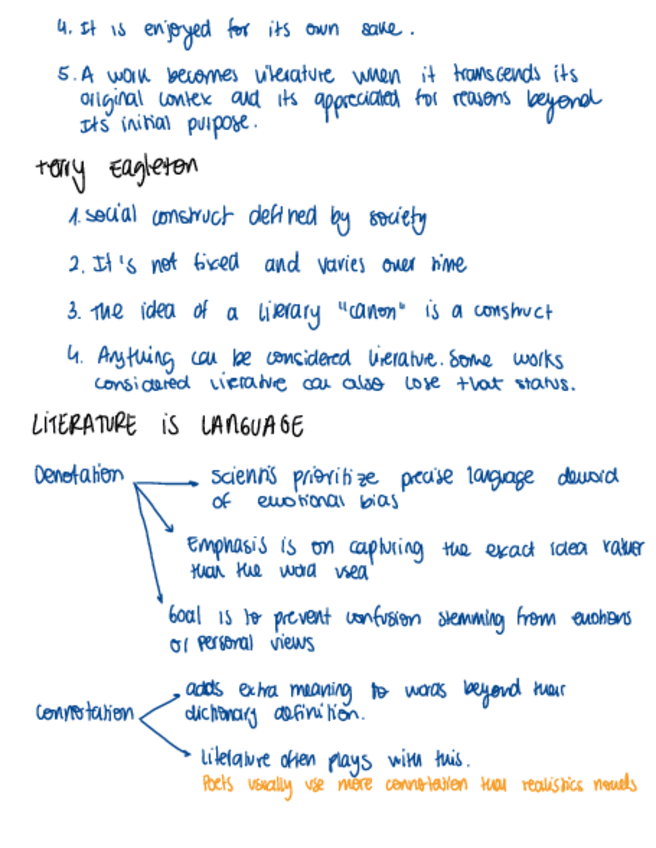 4. It is enjoyed for its own sake.
5. A work becomes literature when it transcends its
original contex and its appreciated for reasons beyond
Its initial purpose.
terry Eagleton
1. social construct defined by society
2. It's not fixed and varies over time
3. The idea of a literary "canon" is a construct
4. Anything can be considered literature. Some works
considered literature can also lose that status.
LITERATURE iS LANGUAGE
Denotation
scientis prioritize precise language devoid
of emotional bias
Emphasis is on capturing the exact idea rather
than the word used
Goal is to prevent confusion stemming from emotions
or personal views
Connotation
adds extra meaning to words beyond their
dictionary definition.
Literature often plays with this.
Poets usually use more connotation than realistics novels